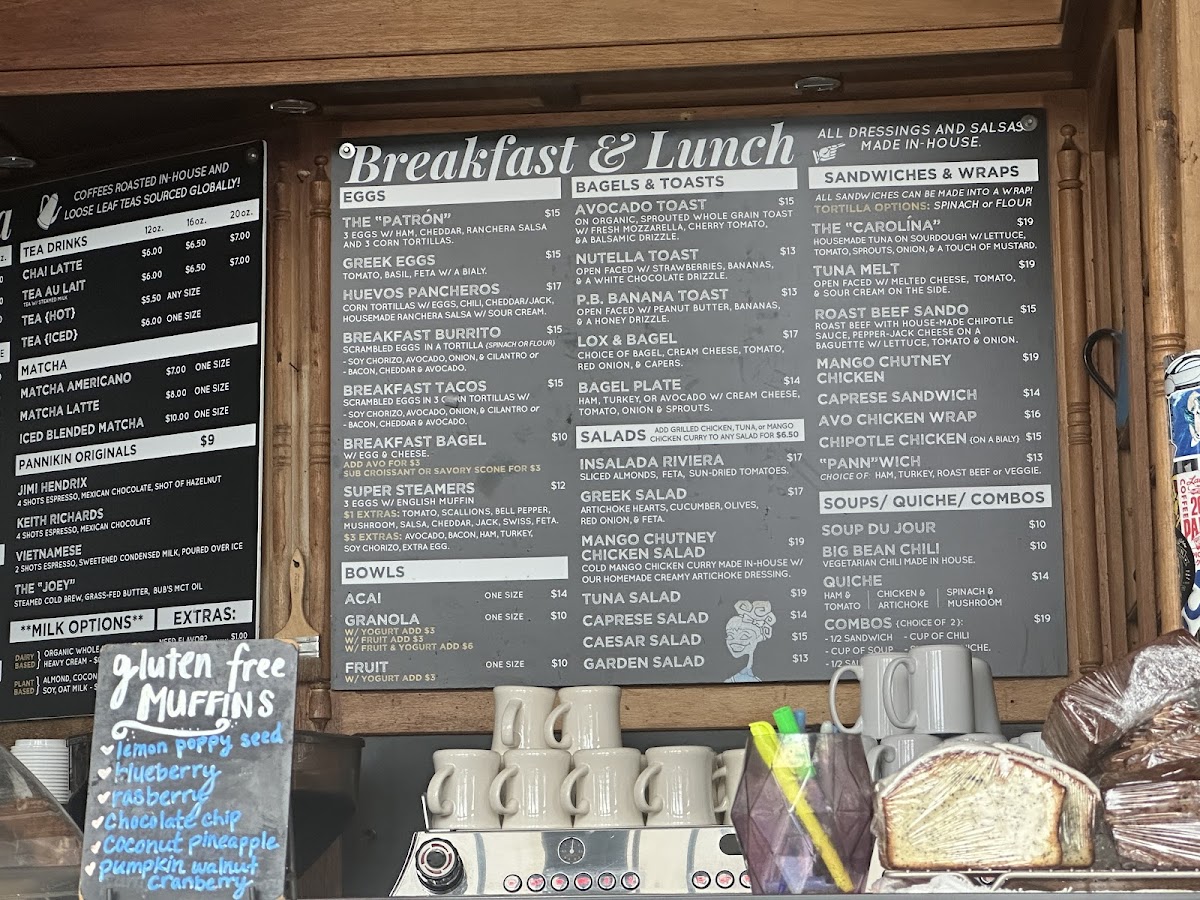 COFFEES ROASTED IN-HOUSE AND
LOOSE LEAF TEAS SOURCED GLOBALLY!
TEA DRINKS 12oz. 16oz. 20oz.
CHAI LATTE $6.00 $6.50 $7.00
TEA AU LAIT $6.00 $6.50 $7.00
TEA W/ STEAMED MILK
TEA {HOT} $5.50 ANY SIZE
TEA {ICED} $6.00 ONE SIZE
MATCHA
MATCHA AMERICANO $7.00 ONE SIZE
MATCHA LATTE $8.00 ONE SIZE
ICED BLENDED MATCHA $10.00 ONE SIZE
PANNIKIN ORIGINALS $9
JIMI HENDRIX
4 SHOTS ESPRESSO, MEXICAN CHOCOLATE, SHOT OF HAZELNUT
KEITH RICHARDS
4 SHOTS ESPRESSO, MEXICAN CHOCOLATE
VIETNAMESE
2 SHOTS ESPRESSO, SWEETENED CONDENSED MILK, POURED OVER ICE
THE "JOEY"
STEAMED COLD BREW, GRASS-FED BUTTER, BUB'S MCT OIL
**MILK OPTIONS** EXTRAS:
DAIRY BASED } ORGANIC WHOLE
HEAVY CREAM
NEED FLAVOR? $1.00
PLANT BASED } ALMOND,
SOY, OAT MILK
Breakfast & Lunch
EGGS
THE "PATRÓN" $15
3 EGGS W/ HAM, CHEDDAR, RANCHERA SALSA
AND 3 CORN TORTILLAS.
GREEK EGGS $15
TOMATO, BASIL, FETA W/ A BIALY.
HUEVOS PANCHEROS $17
CORN TORTILLAS W/ EGGS, CHILI, CHEDDAR/JACK,
HOUSEMADE RANCHERA SALSA W/ SOUR CREAM.
BREAKFAST BURRITO $15
SCRAMBLED EGGS IN A TORTILLA (SPINACH OR FLOUR)
- SOY CHORIZO, AVOCADO, ONION, & CILANTRO or
- BACON, CHEDDAR & AVOCADO.
BREAKFAST TACOS $15
SCRAMBLED EGGS IN 3 CORN TORTILLAS W/
- SOY CHORIZO, AVOCADO, ONION, & CILANTRO or
- BACON, CHEDDAR & AVOCADO.
BREAKFAST BAGEL $10
W/ EGG & CHEESE.
ADD AVO FOR $3
SUB CROISSANT OR SAVORY SCONE FOR $3
SUPER STEAMERS $12
3 EGGS W/ ENGLISH MUFFIN
$1 EXTRAS: TOMATO, SCALLIONS, BELL PEPPER,
MUSHROOM, SALSA, CHEDDAR, JACK, SWISS, FETA.
$3 EXTRAS: AVOCADO, BACON, HAM, TURKEY,
SOY CHORIZO, EXTRA EGG.
BOWLS
ACAI ONE SIZE $14
GRANOLA ONE SIZE $10
W/ YOGURT ADD $3
W/ FRUIT ADD $3
W/ FRUIT & YOGURT ADD $6
FRUIT ONE SIZE $10
W/ YOGURT ADD $3
BAGELS & TOASTS
AVOCADO TOAST $15
ON ORGANIC, SPROUTED WHOLE GRAIN TOAST
W/ FRESH MOZZARELLA, CHERRY TOMATO,
& A BALSAMIC DRIZZLE.
NUTELLA TOAST $13
OPEN FACED W/ STRAWBERRIES, BANANAS,
& A WHITE CHOCOLATE DRIZZLE.
P.B. BANANA TOAST $13
OPEN FACED W/ PEANUT BUTTER, BANANAS,
& A HONEY DRIZZLE.
LOX & BAGEL $17
CHOICE OF BAGEL, CREAM CHEESE, TOMATO,
RED ONION, & CAPERS.
BAGEL PLATE $14
HAM, TURKEY, OR AVOCADO W/ CREAM CHEESE,
TOMATO, ONION & SPROUTS.
SALADS ADD GRILLED CHICKEN, TUNA, or MANGO
CHICKEN CURRY TO ANY SALAD FOR $6.50
INSALADA RIVIERA $17
SLICED ALMONDS, FETA, SUN-DRIED TOMATOES.
GREEK SALAD $17
ARTICHOKE HEARTS, CUCUMBER, OLIVES,
RED ONION, & FETA.
MANGO CHUTNEY
CHICKEN SALAD $19
COLD MANGO CHICKEN CURRY MADE IN-HOUSE W/
OUR HOMEMADE CREAMY ARTICHOKE DRESSING.
TUNA SALAD $19
CAPRESE SALAD $14
CAESAR SALAD $15
GARDEN SALAD $13
ALL DRESSINGS AND SALSAS
MADE IN-HOUSE.
SANDWICHES & WRAPS
ALL SANDWICHES CAN BE MADE INTO A WRAP!
TORTILLA OPTIONS: SPINACH or FLOUR
THE "CAROLÍNA" $19
HOUSEMADE TUNA ON SOURDOUGH W/ LETTUCE,
TOMATO, SPROUTS, ONION, & A TOUCH OF MUSTARD.
TUNA MELT $19
OPEN FACED W/ MELTED CHEESE, TOMATO,
& SOUR CREAM ON THE SIDE.
ROAST BEEF SANDO $15
ROAST BEEF WITH HOUSE-MADE CHIPOTLE
SAUCE, PEPPER-JACK CHEESE ON A
BAGUETTE W/ LETTUCE, TOMATO & ONION.
MANGO CHUTNEY $19
CHICKEN
CAPRESE SANDWICH $14
AVO CHICKEN WRAP $16
CHIPOTLE CHICKEN (ON A BIALY) $15
"PANN"WICH $13
CHOICE OF HAM, TURKEY, ROAST BEEF or VEGGIE.
SOUPS/ QUICHE/ COMBOS
SOUP DU JOUR $10
BIG BEAN CHILI $10
VEGETARIAN CHILI MADE IN HOUSE.
QUICHE $14
HAM & | CHICKEN & | SPINACH &
TOMATO | ARTICHOKE | MUSHROOM
COMBOS {CHOICE OF 2}: $19
- 1/2 SANDWICH - CUP OF CHILI
- CUP OF SOUP
- 1/2
gluten free
MUFFINS
lemon poppy seed
blueberry
rasberry
chocolate chip
coconut pineapple
pumpkin walnut
cranberry